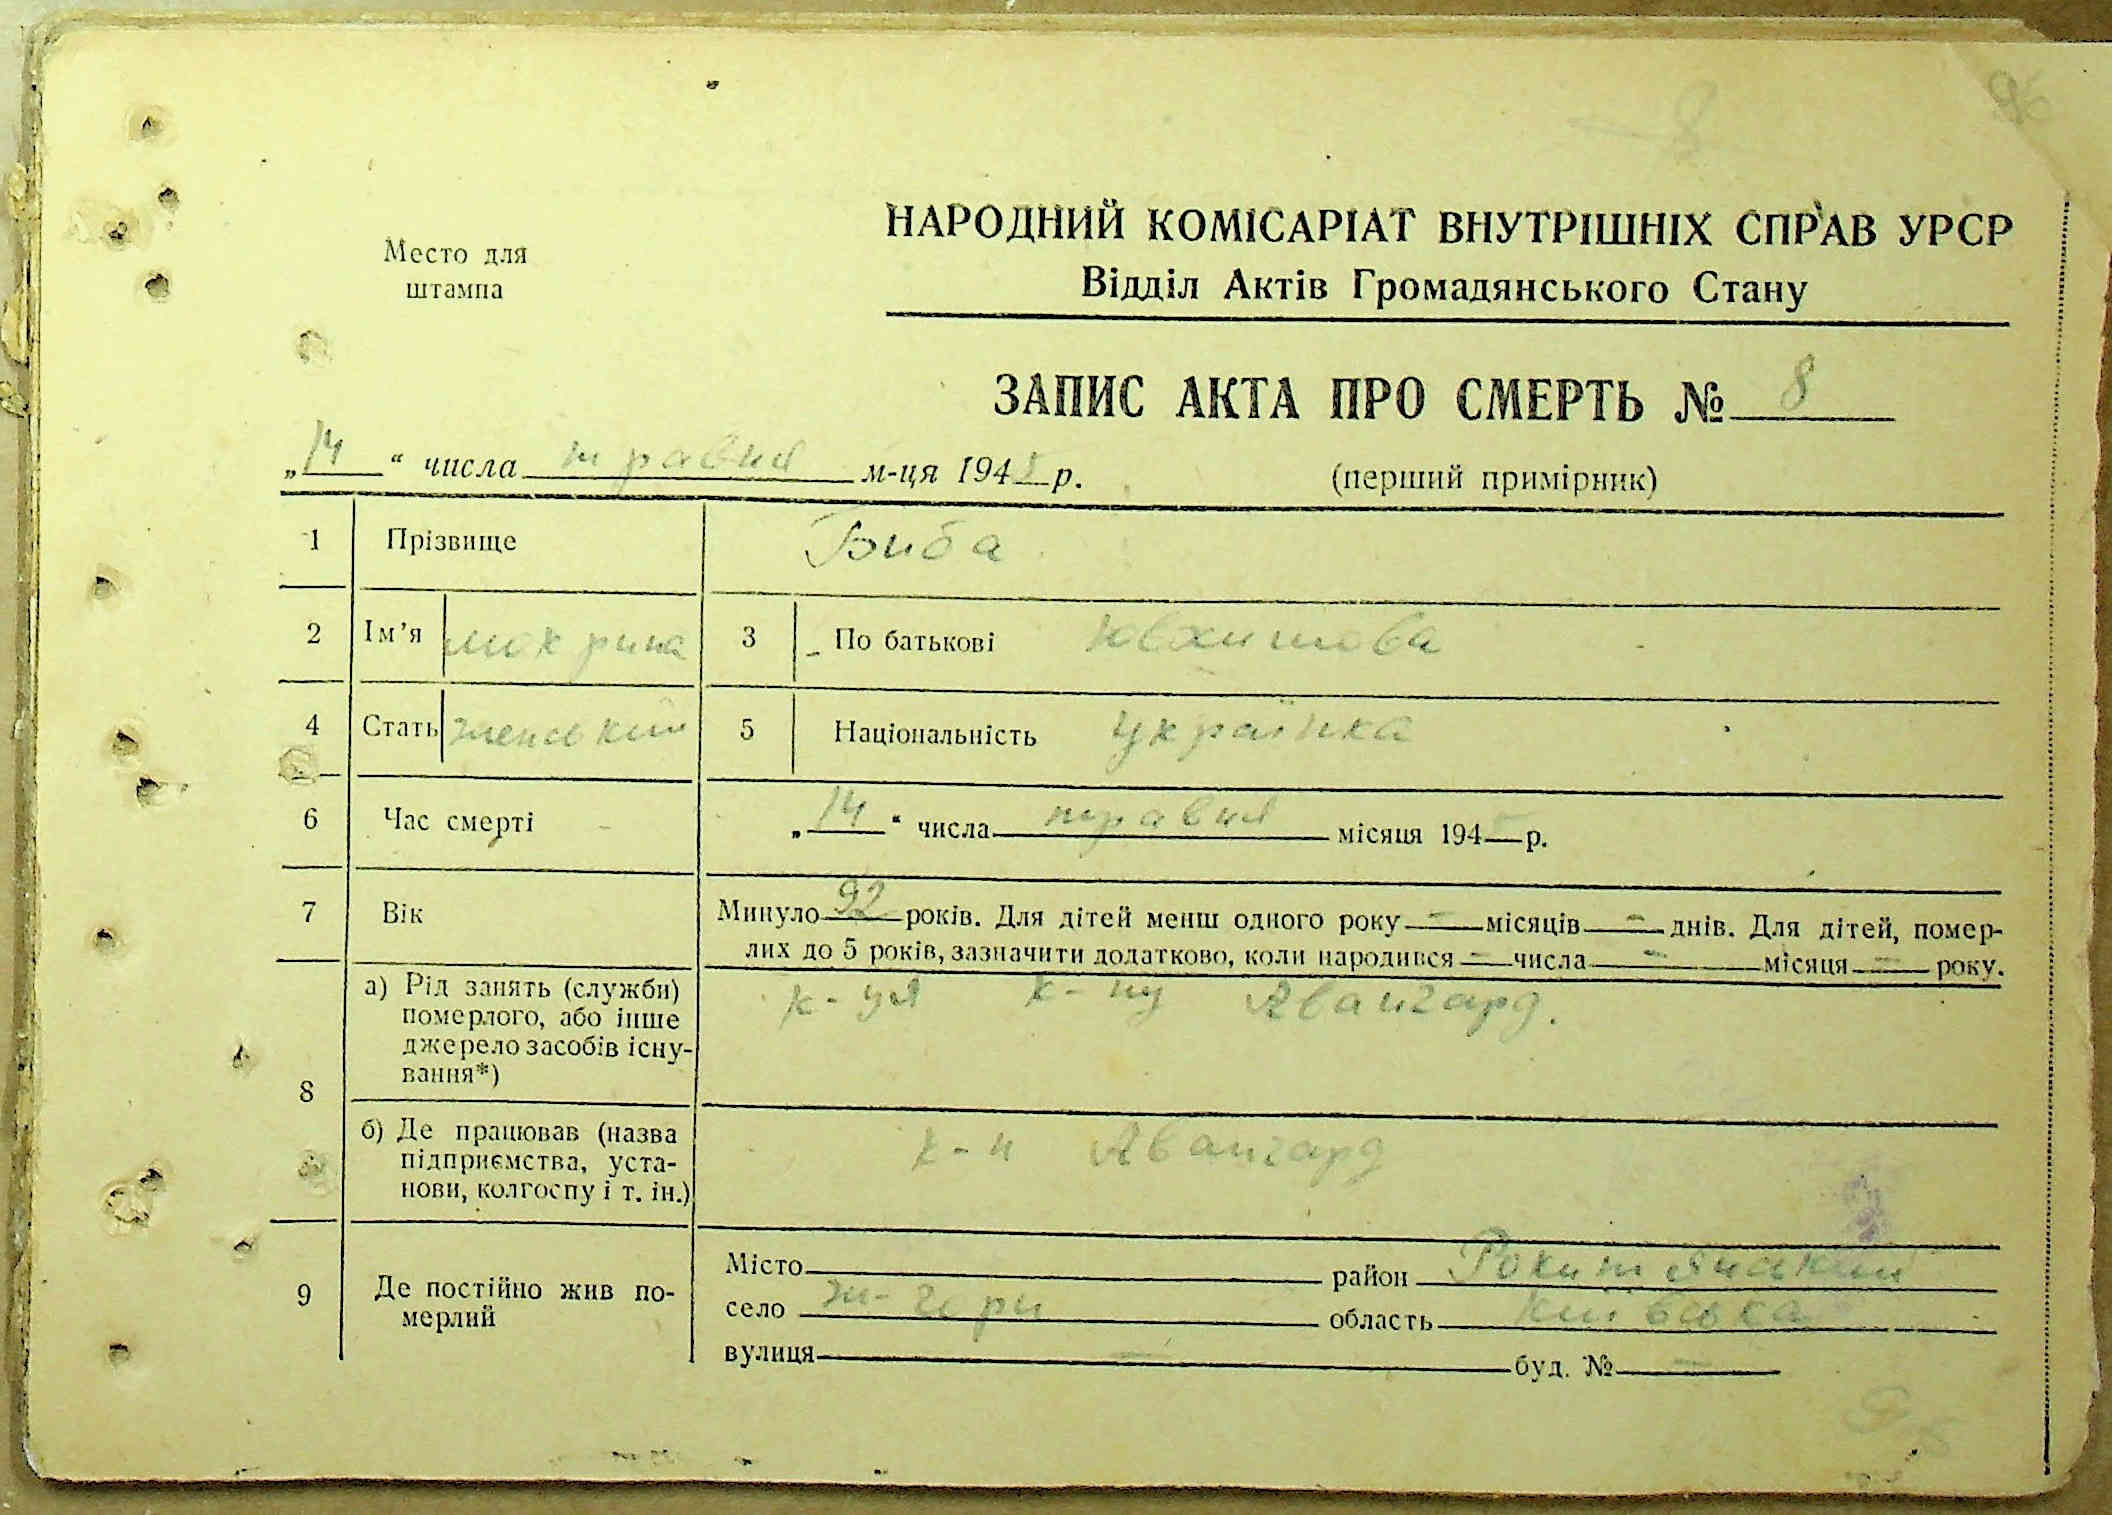 96
8
Место для
штампа
НАРОДНИЙ КОМІСАРІАТ ВНУТРІШНІХ СПРАВ УРСР
Відділ Актів Громадянського Стану
ЗАПИС АКТА ПРО СМЕРТЬ № 8
„14“ числа травня м-ця 1945 р.
(перший примірник)
1 Прізвище Биба
2 Ім’я мокрина 3 По батьковіЮвхимова
4 Стать женський 5 Національність українка
6 Час смерті „14“ числа травня місяця 1945 р.
7 Вік Минуло 92 років. Для дітей менш одного року – місяців – днів. Для дітей, помер-
лих до 5 років, зазначити додатково, коли народився – числа – місяця – року.
8 а) Рід занять (служби)
померлого, або інше
джерело засобів існу-
вання*)
к-ця к-пу Авангард.
б) Де працював (назва
підприємства, уста-
нови, колгоспу і т. ін.)
к-п Авангард
9 Де постійно жив по-
мерлий
Місто район Рокитянський
село область київська
вулиця – буд. № –